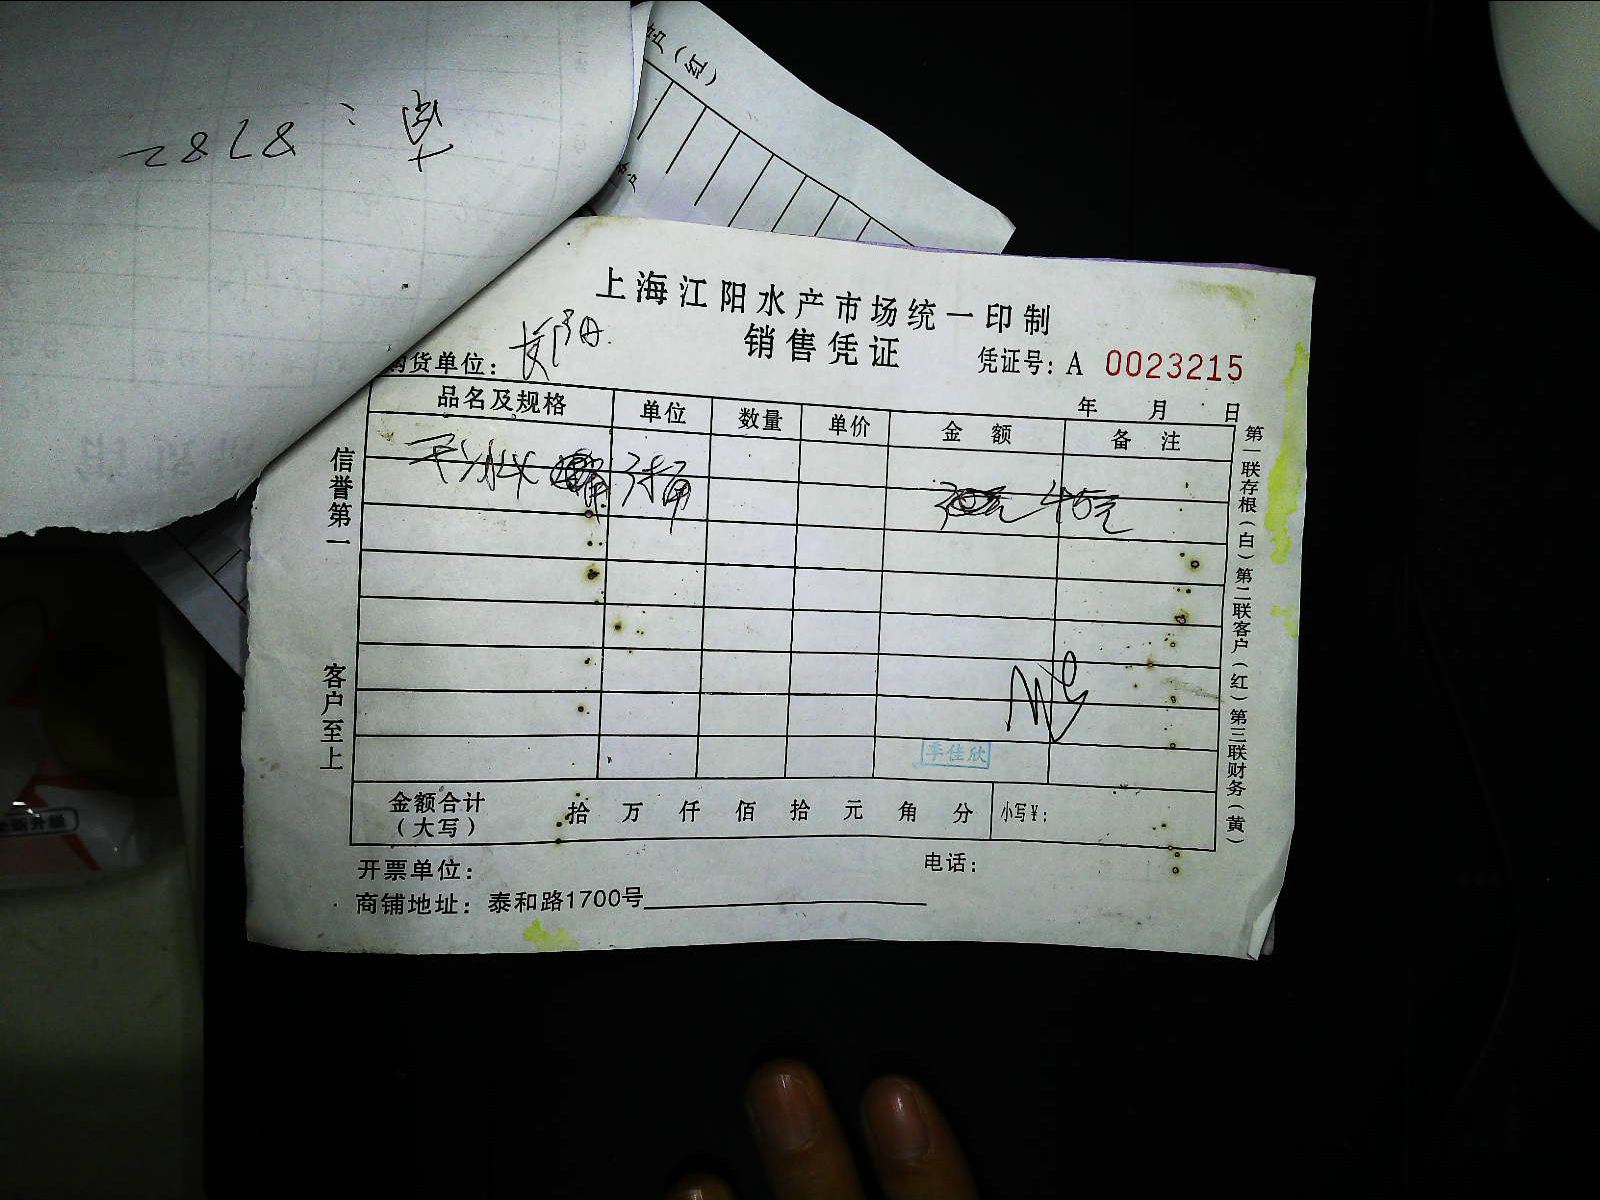 户（红）
上海江阳水产市场统一印制
销售凭证
购货单位：
凭证号：A 0023215
年 月 日
品名及规格 单位 数量 单价 金额 备注
45元
季佳欣
金额合计（大写） 拾 万 仟 佰 拾 元 角 分 小写￥：
开票单位： 电话：
商铺地址：泰和路1700号
信誉第一
客户至上
第一联存根（白）第二联客户（红）第三联财务（黄）